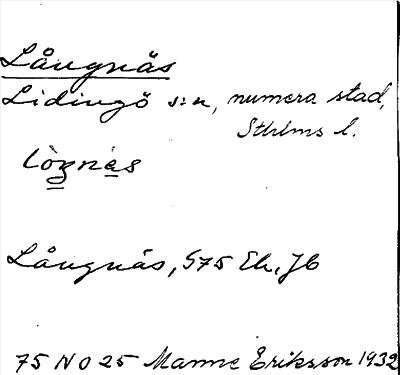 Långnäs
Lidingö s:n, numera stad,
Sthlms l.
lòŋnes
Långnäs, S75 Ek, Jb
75 N O 25 Manne Eriksson 1932